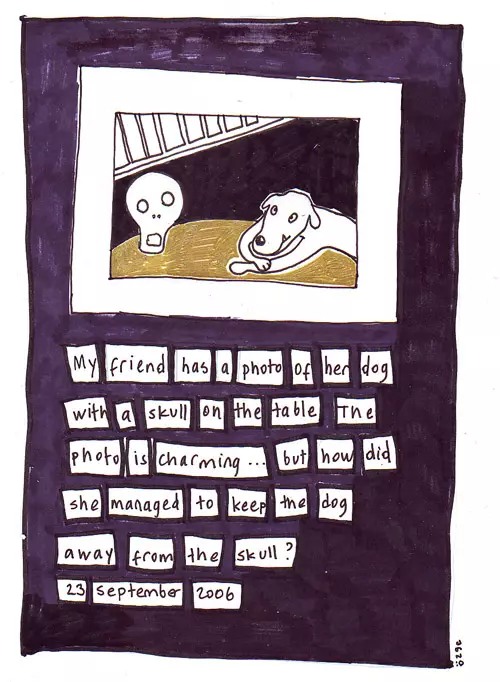 My friend has a photo of her dog
with a skull on the table The
photo is charming... but how did
she managed to keep the dog
away from the skull?
23 september 2006